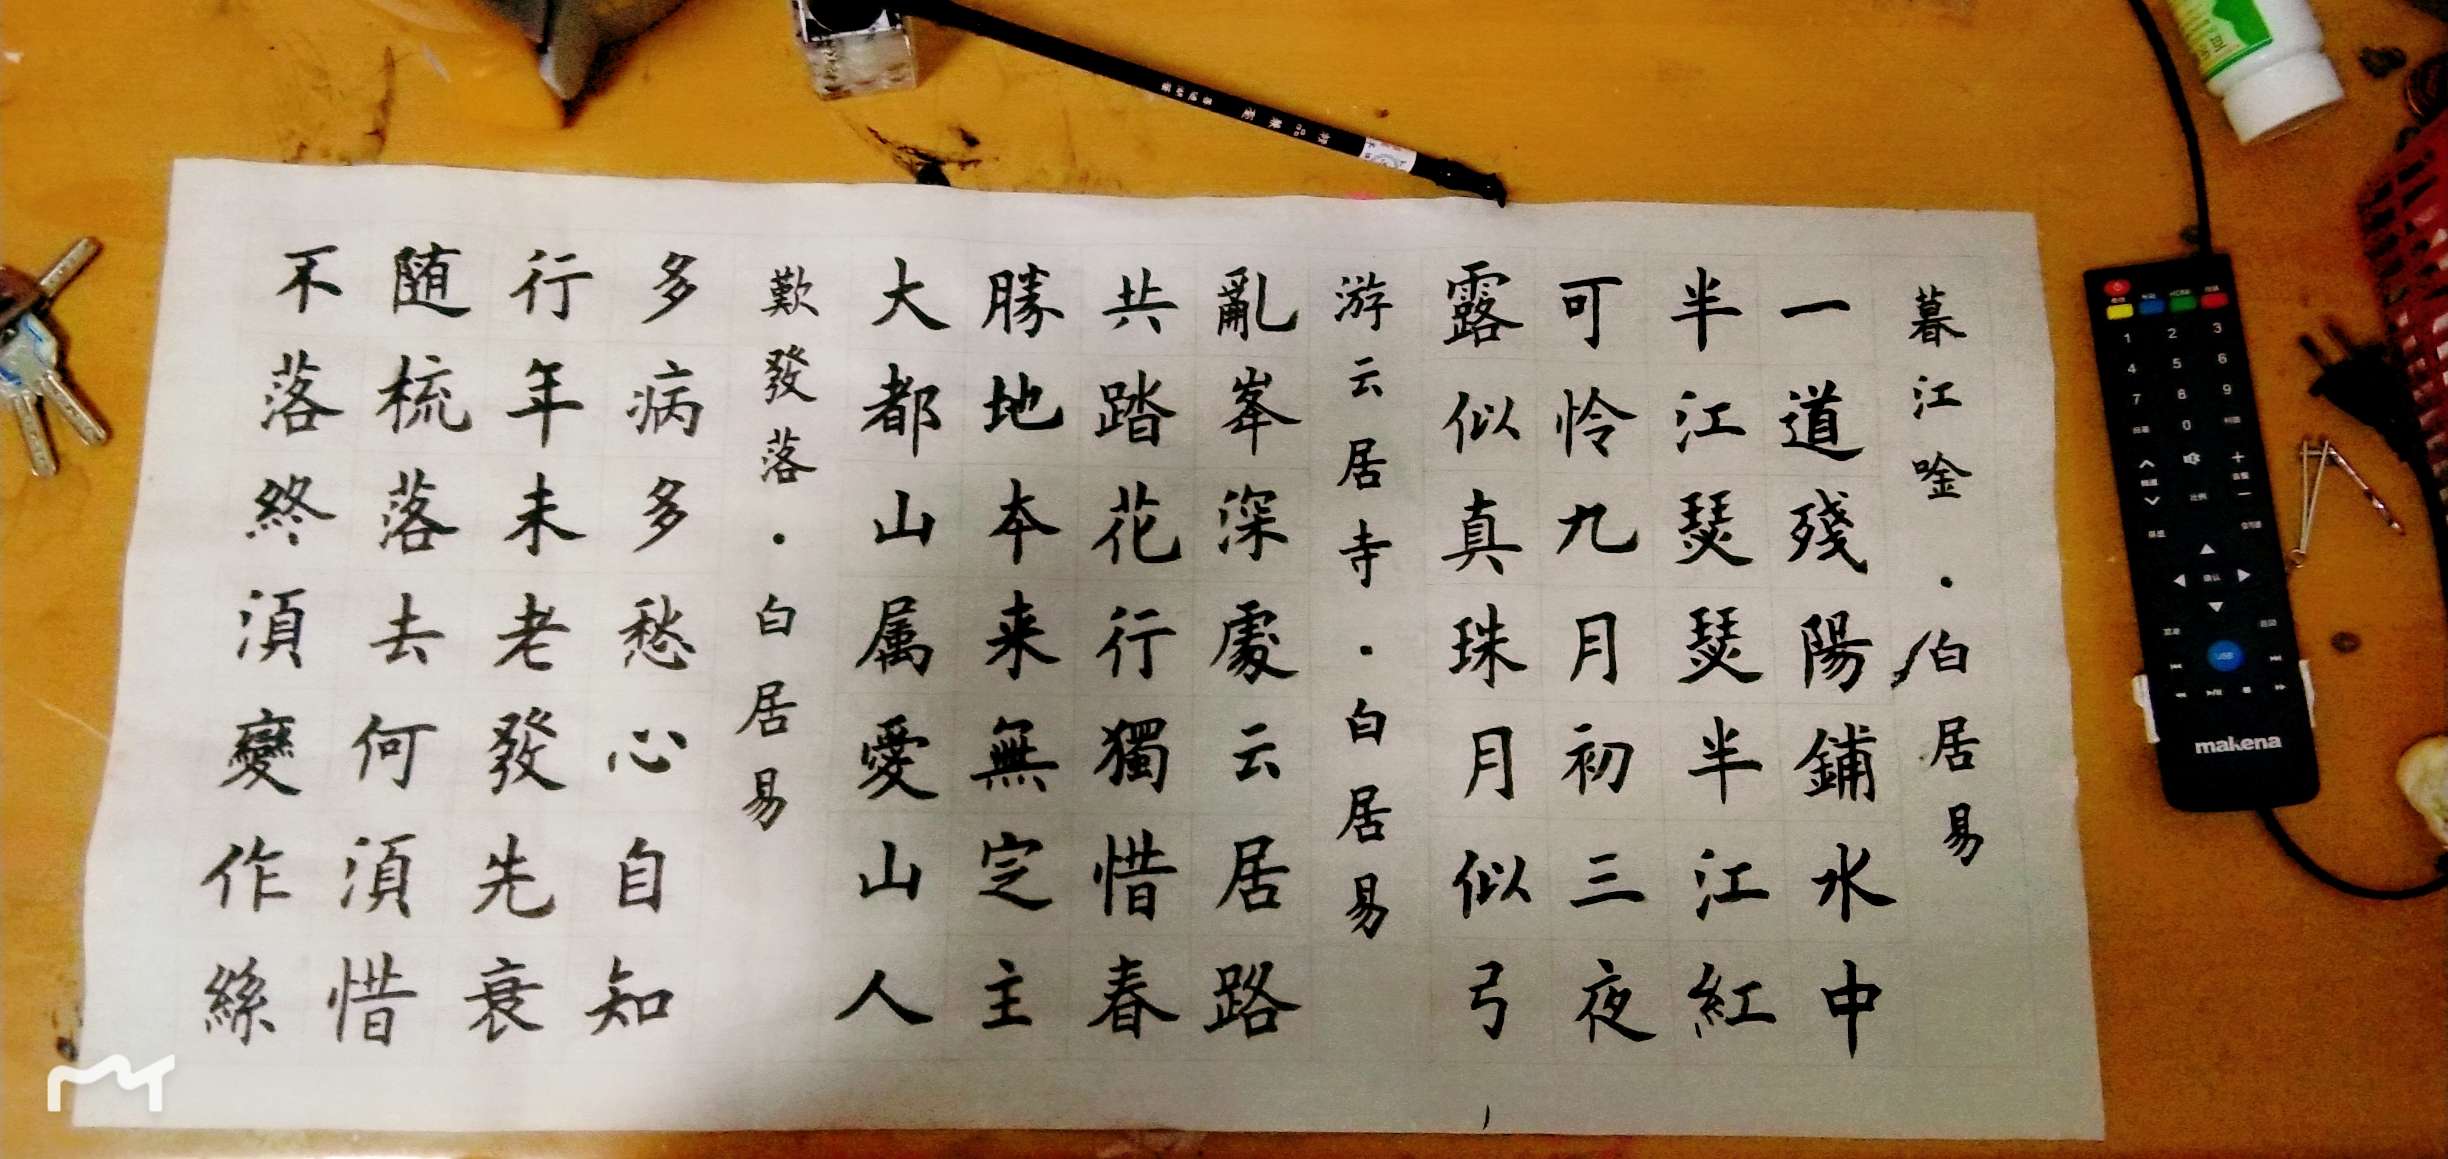 暮江唫·白居易
一道殘陽鋪水中
半江瑟瑟半江紅
可怜九月初三夜
露似真珠月似弓
游云居寺·白居易
亂峯深處云居路
共踏花行獨惜春
勝地本来無定主
大都山属愛山人
歎發落·白居易
多病多愁心自知
行年未老發先衰
随梳落去何湏惜
不落終湏變作絲
1
2
3
4
5
6
7
8
9
0
比例
确认
USB
makena